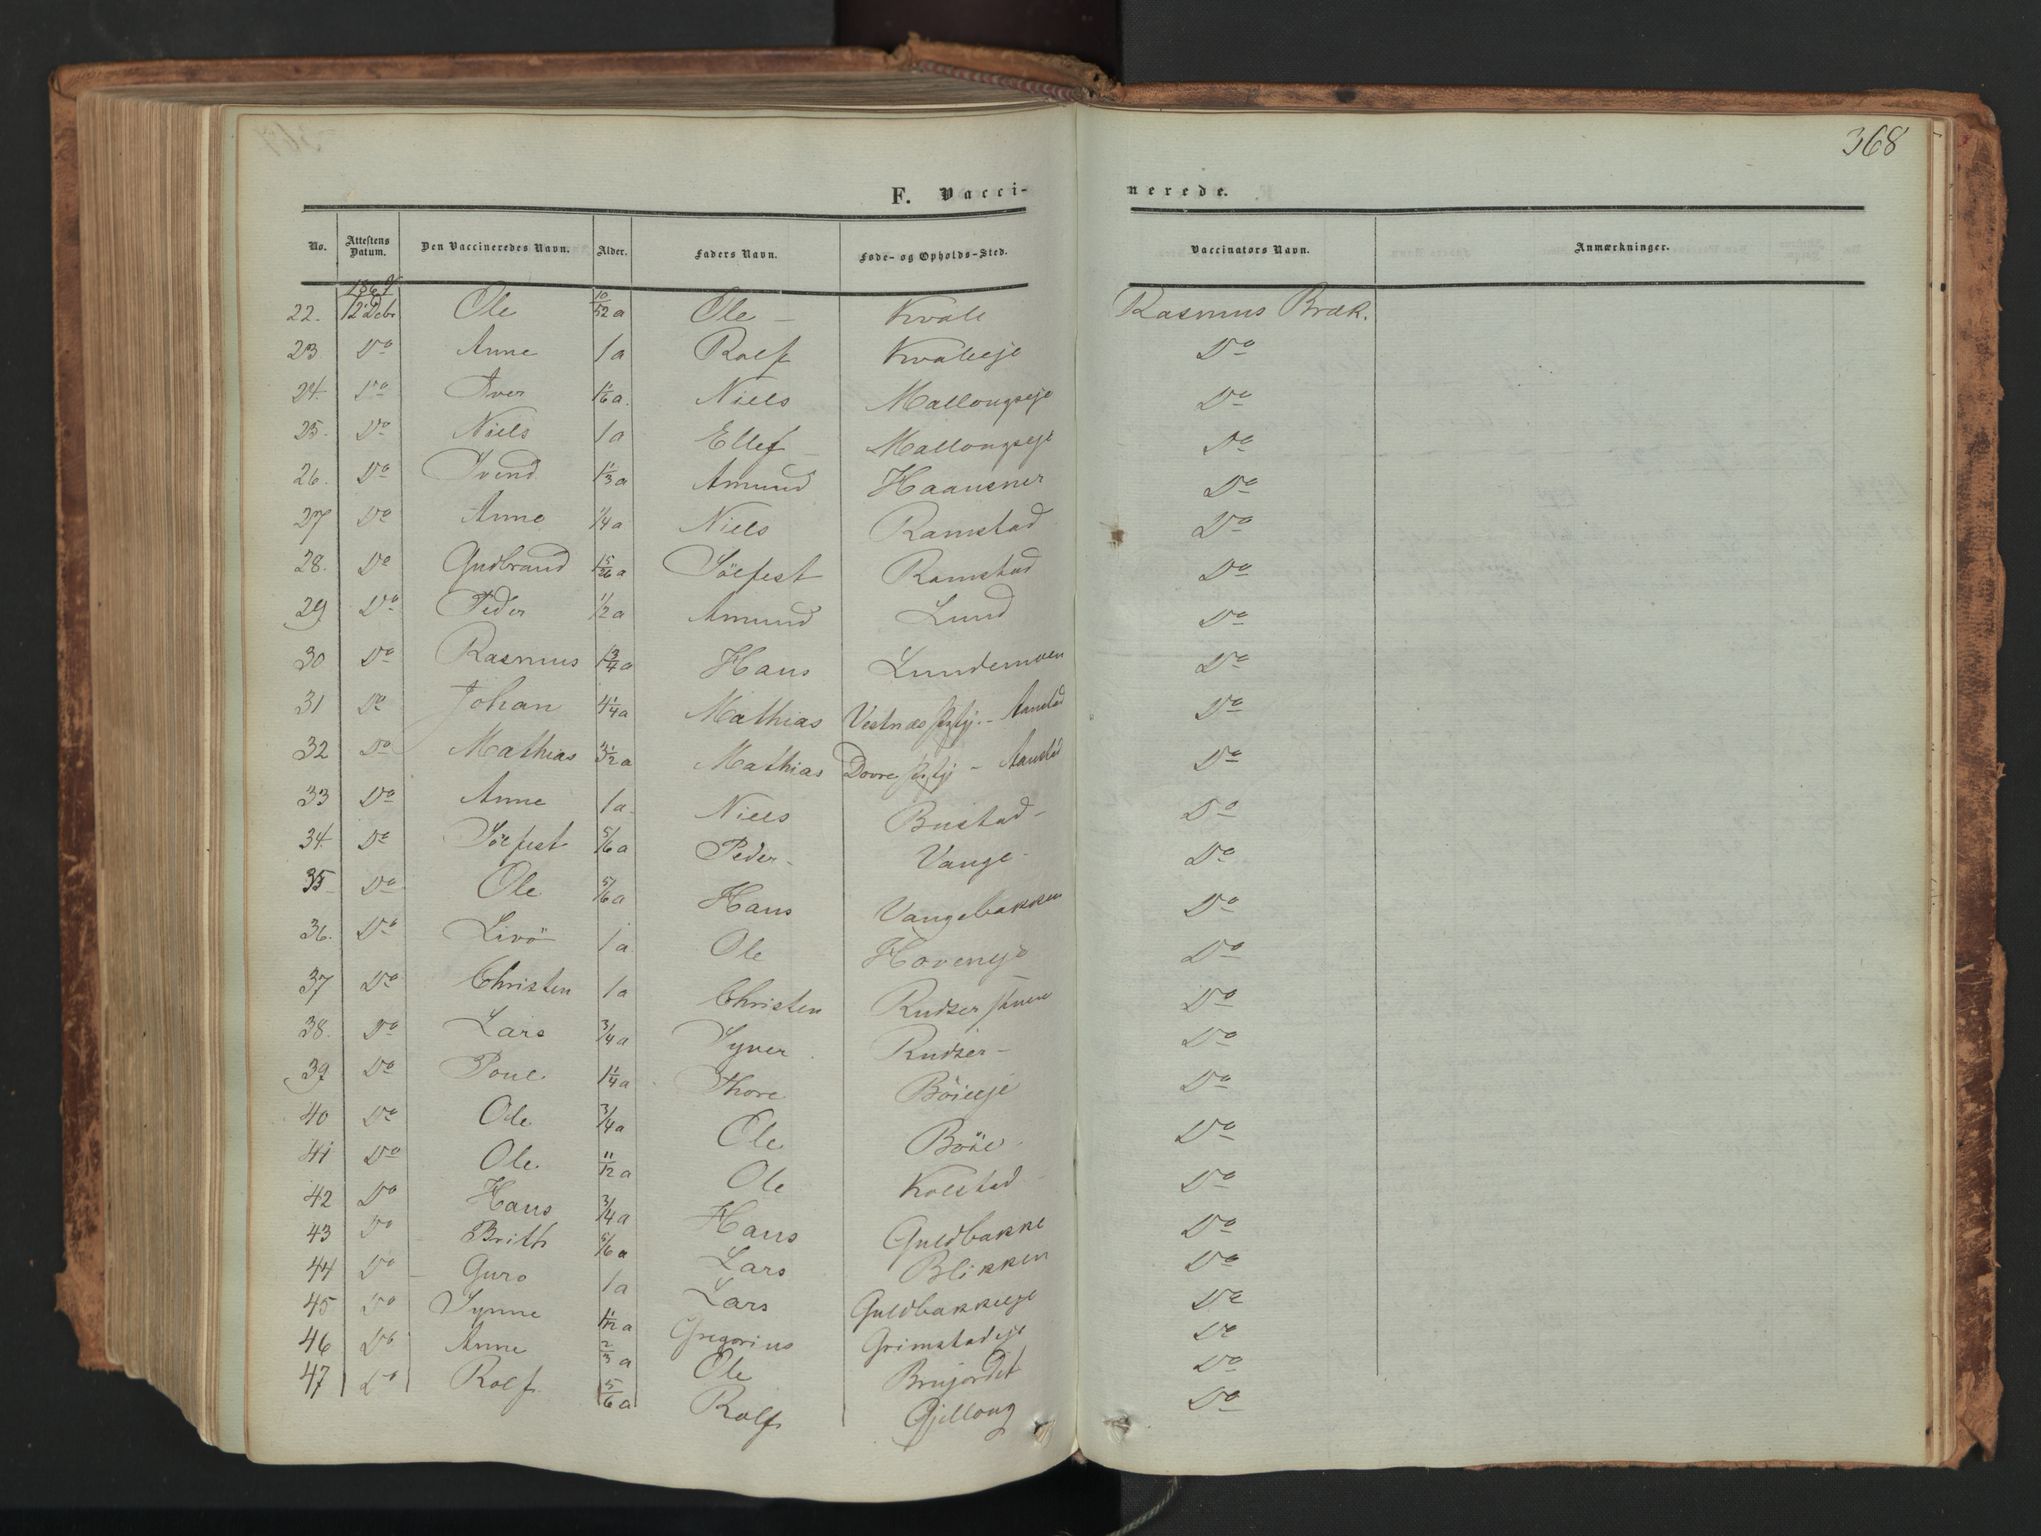 368
F. Vaccinerede.
No. | Attestens Datum. | Den Vaccineredes Navn. | Alder. | Faders Navn. | Føde- og Opholds-Sted. | Vaccinators Navn. | Anmærkninger.
22. | 12 Debr | Ole | 10/52 a | Ole – | Kvale | Rasmus Bræk.
23. | Do | Anne | 1 a | Rolf | Kvaleeje | Do
24. | Do | Iver | 1 1/6 a. | Niels | Mallongseje | Do
25. | Do | Niels | 1 a | Ellef – | Mallongseje | Do
26. | Do | Svend | 1 1/3 a | Amund | Haansner | Do
27 | Do | Anne | 1/4 a | Niels | Ramstad | Do
28. | Do | Gudbrand | 1 5/26 a | Sölfest | Ramstad | Do
29 | Do | Peder | 1/2 a | Amund | Lund | Do
30 | Do | Rasmus | 1 3/4 a | Hans | Lundemoen | Do
31 | Do | Johan | 4 1/4 a | Mathias | Vestnæs Pgtj. – Aanstad | Do
32 | Do | Mathias | 3 1/2 a | Mathias | Dovre Pgtj – Aanstad | Do
33 | Do | Anne | 1 a. | Niels | Bustad – | Do
34 | Do | Sölfest | 5/6 a | Peder – | Vange – | Do
35 | Do | Ole | 5/6 a | Hans | Vangebakken | Do
36. | Do | Livö | 1 a | Ole | Hoveneje | Do
37 | Do | Christen | 1 a | Christen | Rudserstuen | Do
38. | Do | Lars | 3/4 a | Syver | Rudser – | Do
39 | Do | Poul | 1 1/4 a | Thore | Böieeje | Do
40 | Do | Ole | 3/4 a | Ole | Böie | Do
41 | Do | Ole | 11/12 a | Ole | Kolstad – | Do
42 | Do | Hans | 3/4 a | Hans | Guldbakke | Do
43 | Do | Brith | 5/6 a | Lars | Blikken | Do
44 | Do | Guro | 1 a | Lars | Guldbakkeeje | Do
45 | Do | Synne | 1 1/12 a | Gregorius | Grimstadeje | Do
46 | Do | Anne | 2/3 a | Ole | Brujordet | Do
47 | Do | Rolf | 5/6 a | Rolf | Gjellong | Do